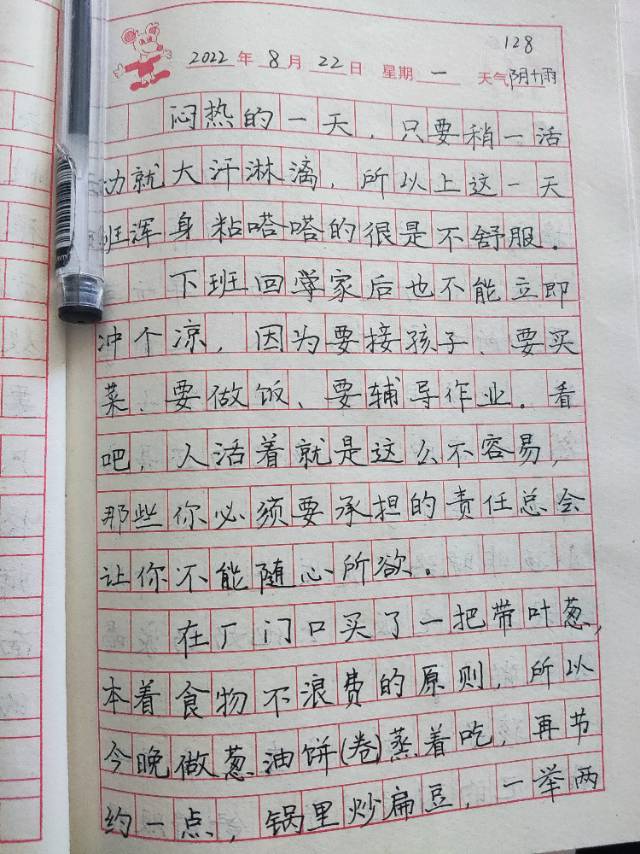 128
2022年8月22日 星期一 天气阴十雨
闷热的一天，只要稍一活
动就大汗淋漓，所以上这一天
班浑身粘嗒嗒的很是不舒服.
下班回家后也不能立即
冲个凉，因为要接孩子、要买
菜、要做饭、要辅导作业.看
吧，人活着就是这么不容易，
那些你必须要承担的责任总会
让你不能随心所欲.
在厂门口买了一把带叶葱，
本着食物不浪费的原则，所以
今晚做葱油饼(卷)蒸着吃，再节
约一点，锅里炒扁豆，一举两